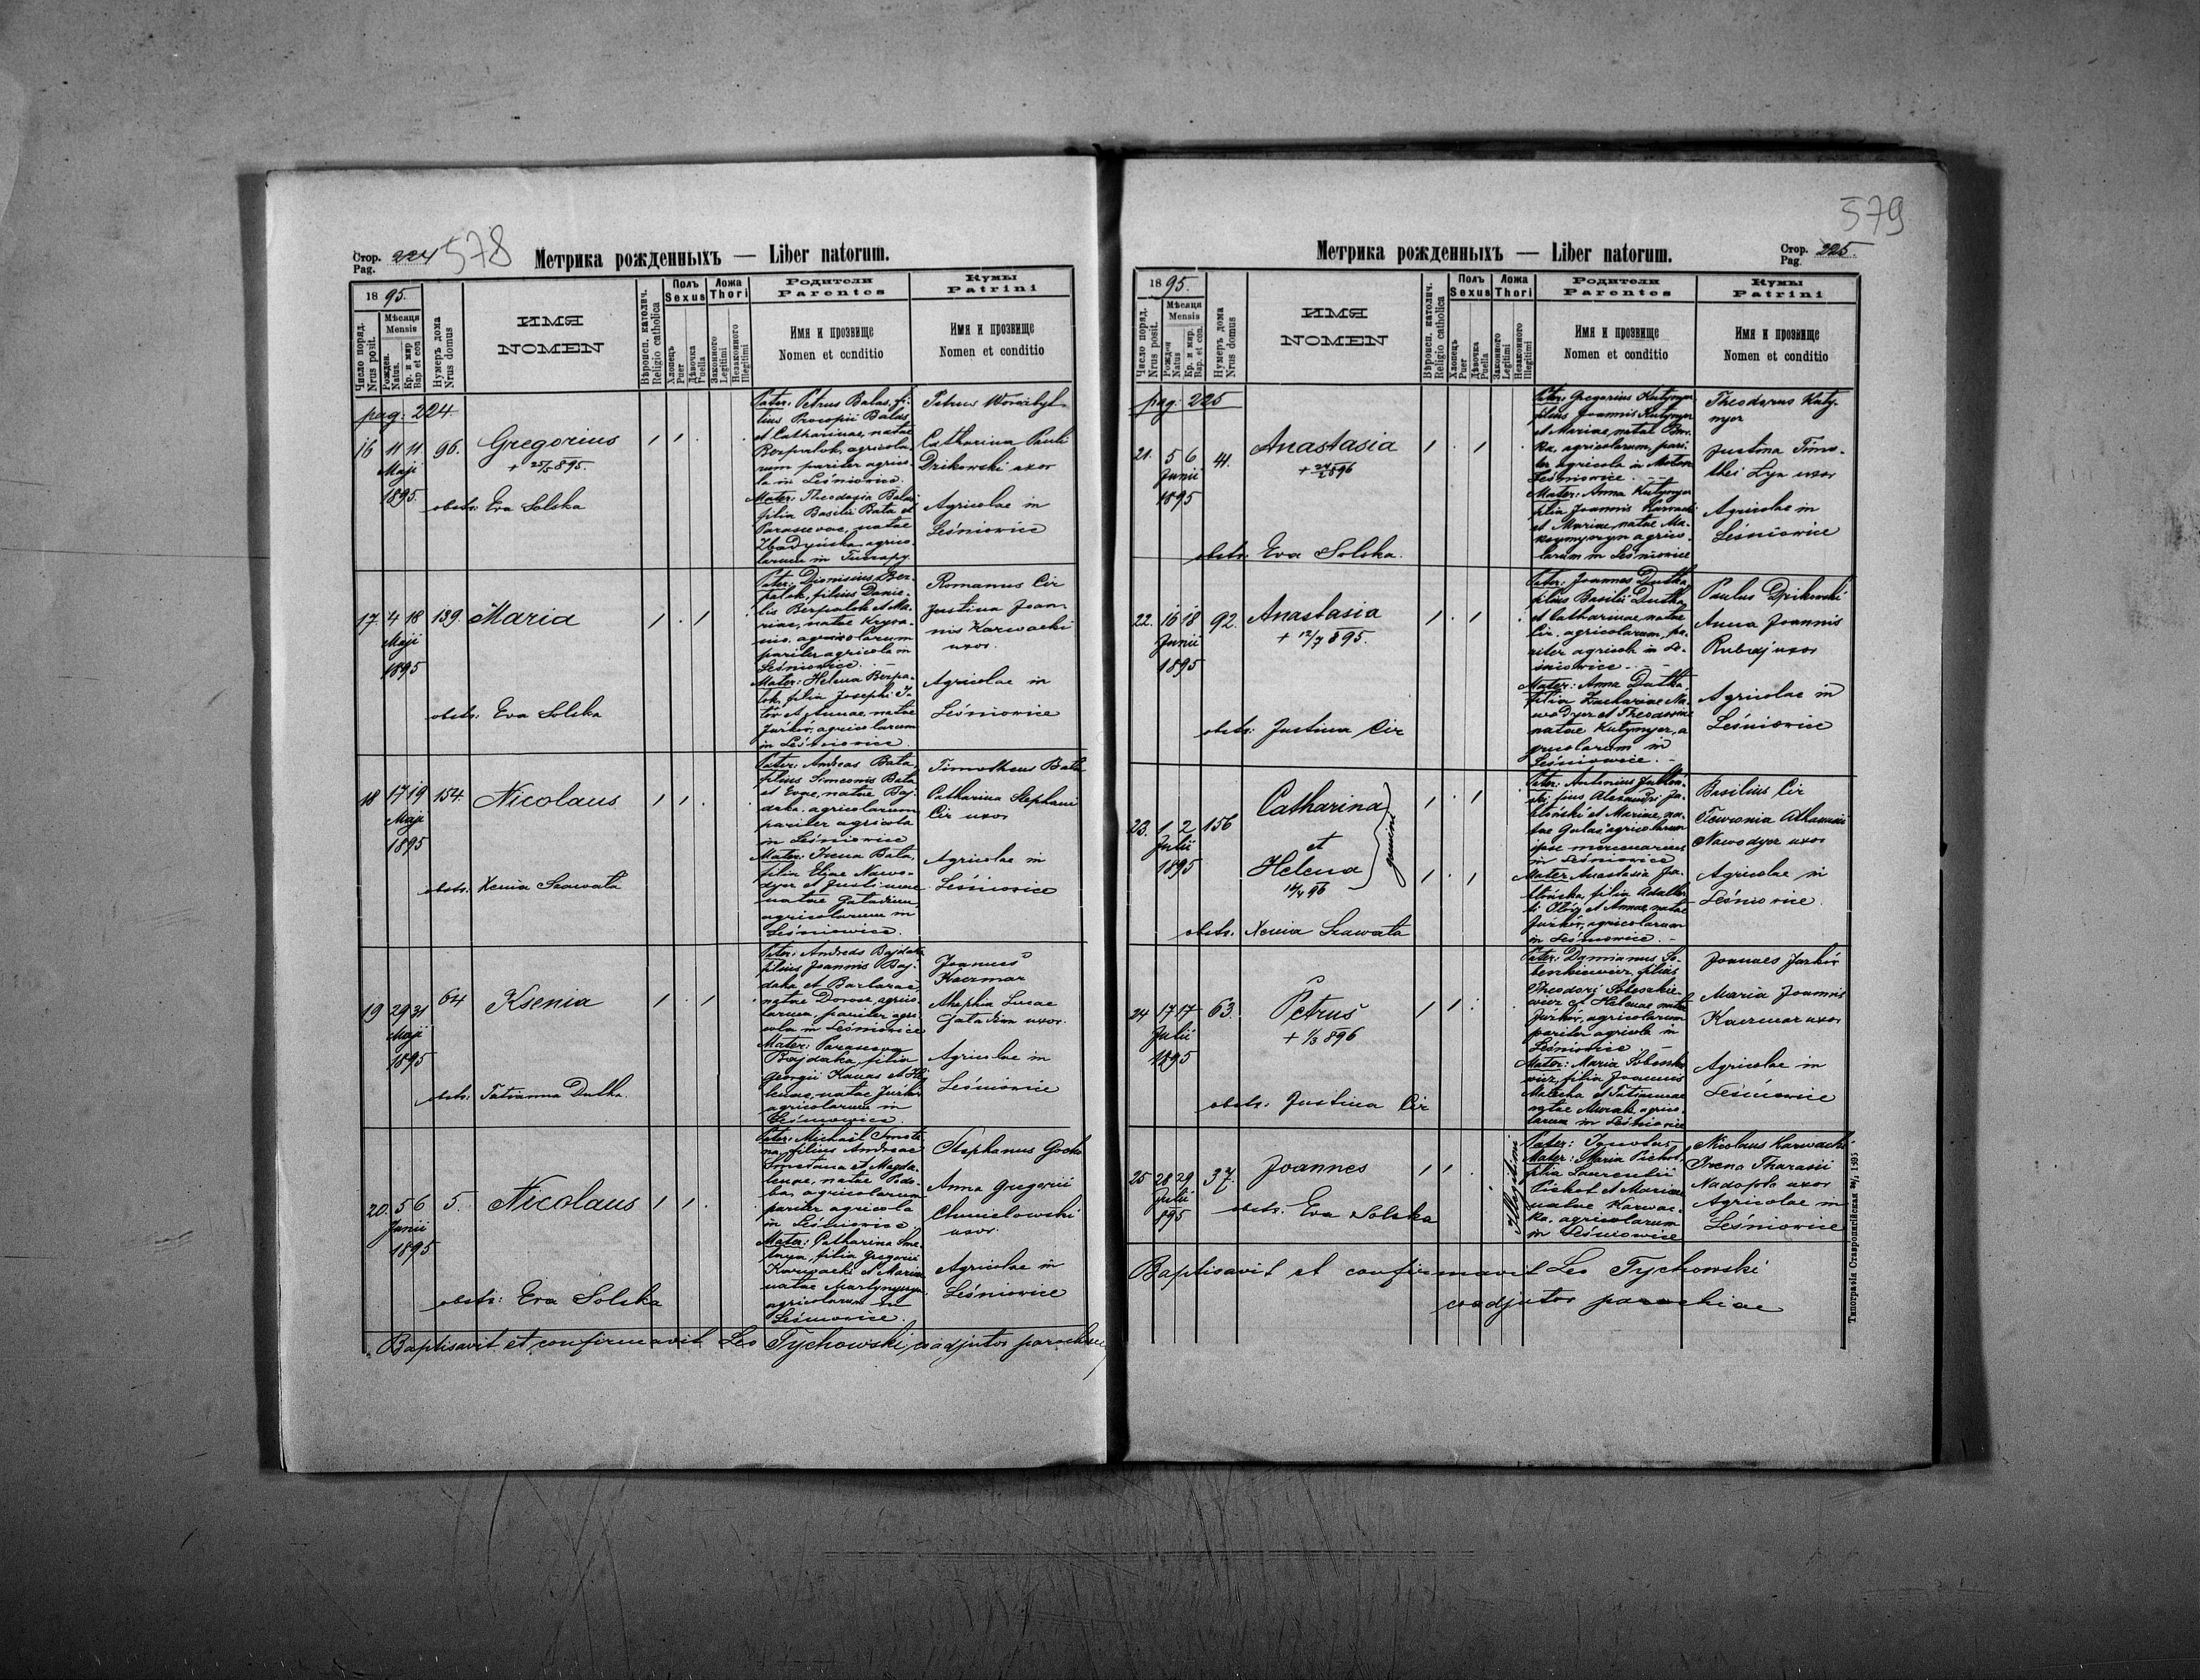 Стор. Pag. 224
578
Метрика рожденныхъ — Liber natorum.
1895.
Число поряд. Nrus posit.
Мѣсяця Mensis
Рожден. Natus.
Кр. и мир Bap. et con
Нумеръ дома Nrus domus
ИМЯ
NOMEN
Вѣроисп. католич. Religio catholica
Полъ Sexus
Хлопецъ Puer
Дѣвочка Puella
Ложа Thori
Законного Legitimi
Незаконного Illegitimi
Родители
Parentes
Имя и прозвище
Nomen et conditio
Кумы
Patrini
Имя и прозвище
Nomen et conditio
pag: 224
16 11 11. 96. Gregorius
Maji + 25/5 895.
1895.
obstr: Eva Solska
Pater: Petrus Balas, fi-
lius Procopii Balas
et Catharinae, natae
Bezpalok, agricola-
rum pariter agrico-
la in Leśniowice.
Mater: Theodosia Balas
filia Basilii Bata et
Parascevae, natae
agrico-
larum in
Petrus Worobyl
Catharina Pauli
Dzikowski uxor
Agricolae in
Leśniowice
17. 4 18 139. Maria
Maji
1895
obstr: Eva Solska
Pater: Dionisius Bez-
palok, filius Danie-
lis Bezpalok et Ma-
riae, natae
agricolarum
pariter agricola in
Leśniowice.
Mater: Helena Bezpa-
lok, filia Josephi
et Annae, natae
Jurków, agricolarum
in Leśniowice.
Romanus Cir
Justina Joan-
nis Karwacki
uxor.
Agricolae in
Leśniowice
18 17 19 154. Nicolaus
Maji
1895
obstr: Xenia Szawała
Pater: Andreas Bata,
filius Simeonis Bata
et Evae, natae Baj-
daka, agricolarum
pariter agricola
in Leśniowice
Mater: Irena Bata,
filia Eliae Nawo-
dyer et Justinae
natae Galadium,
agricolarum in
Leśniowice.
Timotheus Bata
Catharina Stephani
Cir uxor
Agricolae in
Leśniowice
19 29 31 64 Ksenia
Maji
1895
obstr: Tatianna Dutka.
Pater: Andreas Bajdaka
filius Joannis Baj-
daka et Barbarae,
natae agrico-
larum, pariter agri-
cola in Leśniowice
Mater: Parasceva
Bajdaka, filia
Georgii Kanas et He-
lenae, natae Jurków
agricolarum in
Leśniowice.
Joannes
Kaczmar
Lucae
uxor.
Agricolae in
Leśniowice
20. 5 6 5. Nicolaus
Junii
1895
obstr: Eva Solska
Pater: Michaël Smeta-
na, filius Andreae
Smetana et Magda-
lenae, natae Podo-
ba, agricolarum
pariter agricola
in Leśniowice
Mater: Catharina Sme-
tana, filia Gregorii
Karwacki et Mariae
natae
agricolarum in
Leśniowice.
Stephanus
Anna Gregorii
Chmielowski
uxor.
Agricolae in
Leśniowice
Baptisavit et confirmavit Leo Tychowski, coadjutor parochiae
579
Метрика рожденныхъ — Liber natorum.
Стор. Pag. 225.
1895.
Число поряд. Nrus posit.
Мѣсяця Mensis
Рожден Natus
Кр. и мир. Bap. et con.
Нумеръ дома Nrus domus
ИМЯ
NOMEN
Вѣроисп. католич. Religio catholica
Полъ Sexus
Хлопецъ Puer
Дѣвочка Puella
Ложа Thori
Законного Legitimi
Незаконного Illegitimi
Родители
Parentes
Имя и прозвище
Nomen et conditio
Кумы
Patrini
Имя и прозвище
Nomen et conditio
pag: 225
21. 5 6 41. Anastasia
Junii
1895
obstr: Eva Solska.
Pater: Gregorius Kutynyer
filius Joannis Kutynyer
et Mariae, natae
agricolarum, pari-
ter agricola in
Leśniowice.
Mater: Anna Kutynyer
filia Joannis Karwacki
et Mariae, natae
agrico-
larum in Leśniowice
Theodorus Kuty-
nyer
Justina Timo-
thei uxor
Agricolae in
Leśniowice
22. 16 18 92. Anastasia
Junii + 12/7 895.
1895
obstr: Justina Cir
Pater: Joannes Dutka,
filius Basilii Dutka
et Catharinae, natae
Cir, agricolarum, pa-
riter agricola in Le-
śniowice.
Mater: Anna Dutka
filia Zachariae Na-
wodyer et Theodosiae
natae Kutynyer, a-
gricolarum in
Leśniowice.
Paulus Dzikowski
Anna Joannis
uxor
Agricolae in
Leśniowice
23. 1 2 156 Catharina
Julii et
1895 Helena
gemini
14/4 96
obstr. Xenia Szawała
Pater: Antonius Jabłoń-
ski, filius Alexandri Ja-
błoński et Mariae, na-
tae agricolarum
ipse mercenarius
in Leśniowice
Mater: Anastasia Ja-
błońska, filia Adalber-
ti et Annae, natae
Jurków, agricolarum
in Leśniowice.
Basilius Cir
Athanasii
Nawodyer uxor
Agricolae in
Leśniowice.
24 17 17 63. Petrus
Julii + 1/3 896
1895
obstr. Justina Cir
Pater: Damianus So-
beszkiewicz, filius
Theodori Sobeszkie-
wicz et Helenae, natae
Jurków, agricolarum
pariter agricola in
Leśniowice.
Mater: Maria Sobeszkie-
wicz, filia Joannis
et Tatianae
natae agrico-
larum in Leśniowice
Joannes Jurków
Maria Joannis
Kaczmar uxor
Agricolae in
Leśniowice
25 28 29 37. Joannes
Julii
895
obstr. Eva Solska
Illegitimi
Pater: Ignotus,
Mater: Maria Pichot,
filia Laurentii
Pichot et Mariae
natae Karwac-
ka, agricolarum
in Leśniowice
Nicolaus Karwacki
Irena Tharasii
uxor
Agricolae in
Leśniowice
Baptisavit et confirmavit Leo Tychowski
coadjutor parochiae